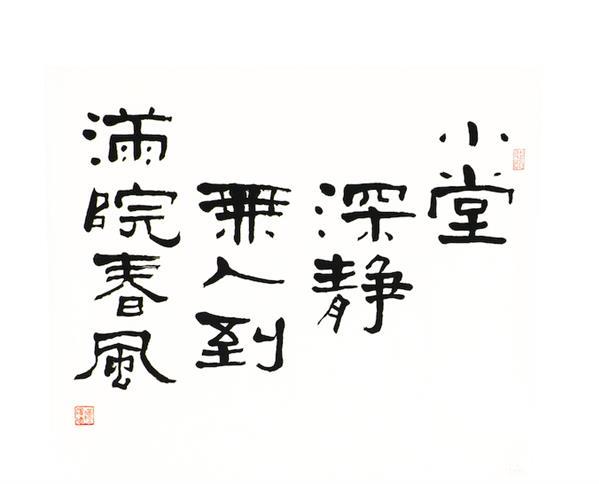 小堂
深静
無人到
滿院春風